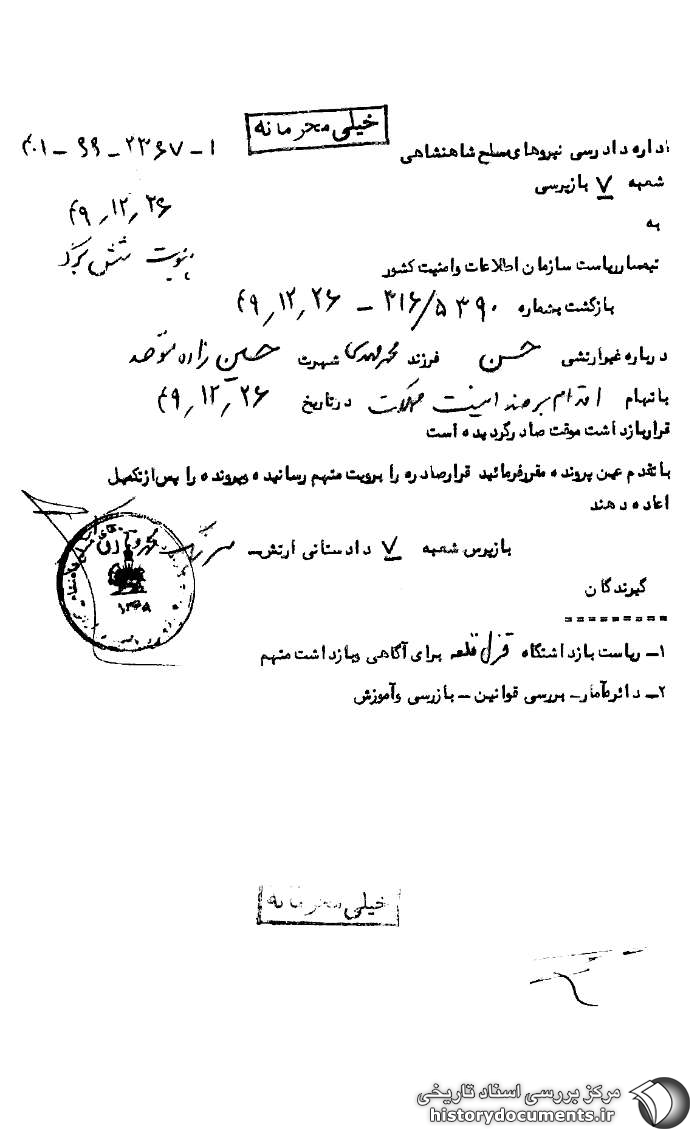 خیلی محرمانه
اداره دادرسی نیروهای مسلح شاهنشاهی
۱ - ۲۳۶۷ - ۹۹ - ۴۰۱
شعبه ۷ بازپرسی
۴۹٫۱۲٫۲۶
به
پیوست شش برگ
تیمسار ریاست سازمان اطلاعات و امنیت کشور
بازگشت بشماره ۳۱۶/۵۳۹۰ - ۴۹٫۱۲٫۲۶
درباره غیرارتشی حسن فرزند محمدمهدی شهرت حسین زاده موحد
باتهام اقدام بر ضد امنیت مملکت در تاریخ ۴۹٫۱۲٫۲۶
قرار بازداشت موقت صادر گردیده است
با تقدم عین پرونده مقرر فرمائید قرار صادره را برویت متهم رسانیده و پرونده را پس از تکمیل
اعاده دهند
بازپرس شعبه ۷ دادستانی ارتش -
گیرندگان
========
۱- ریاست بازداشتگاه قزل قلعه برای آگاهی و بازداشت متهم
۲- دائره آمار - بررسی قوانین - بازرسی و آموزش
خیلی محرمانه
مرکز بررسی اسناد تاریخی
historydocuments.ir